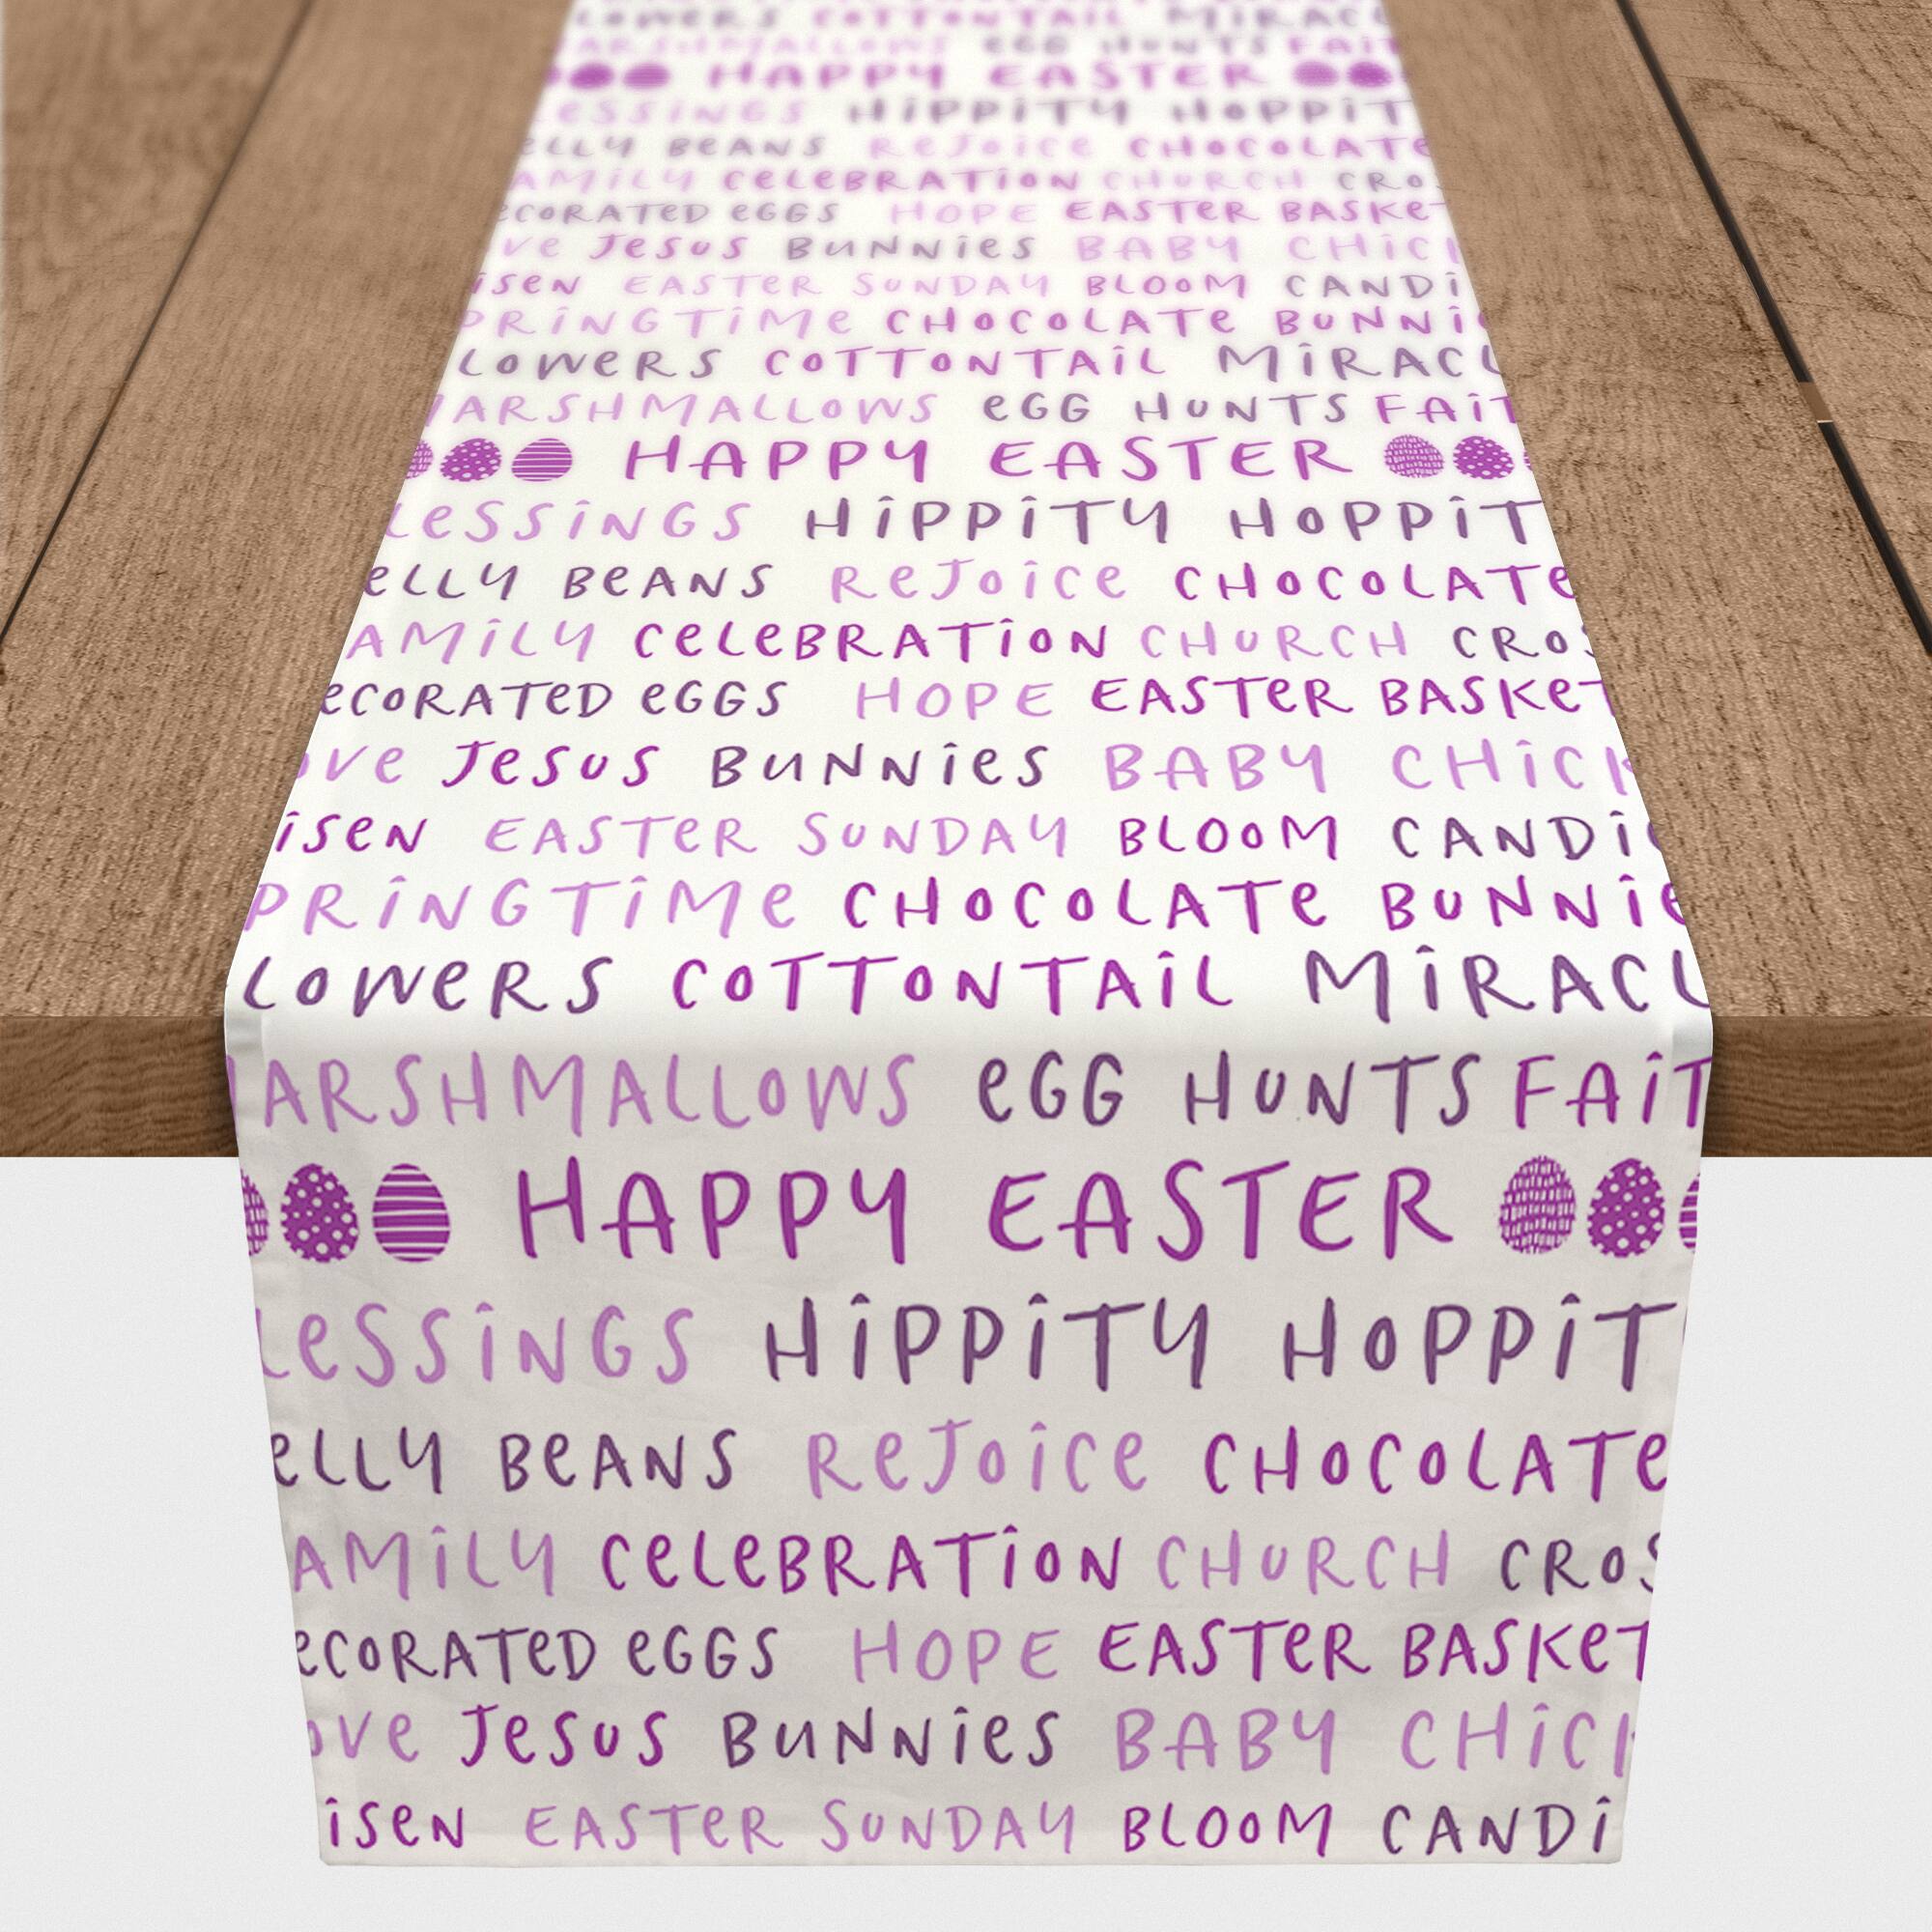 LOWERS COTTONTAIL MIRACL
ARSHMALLOWS EGG HUNTS FAIT
HAPPY EASTER
ESSINGS HIPPITY HOPPIT
ELLY BEANS REJOICE CHOCOLATE
AMILY CELEBRATION CHURCH CRO
ECORATED EGGS HOPE EASTER BASKET
VE JESUS BUNNIES BABY CHIC
ISEN EASTER SUNDAY BLOOM CANDI
PRINGTIME CHOCOLATE BUNNI
LOWERS COTTONTAIL MIRACL
ARSHMALLOWS EGG HUNTS FAIT
HAPPY EASTER
LESSINGS HIPPITY HOPPIT
ELLY BEANS REJOICE CHOCOLATE
AMILY CELEBRATION CHURCH CROS
ECORATED EGGS HOPE EASTER BASKET
OVE JESUS BUNNIES BABY CHICK
ISEN EASTER SUNDAY BLOOM CANDI
PRINGTIME CHOCOLATE BUNNIE
LOWERS COTTONTAIL MIRACL
ARSHMALLOWS EGG HUNTS FAIT
HAPPY EASTER
LESSINGS HIPPITY HOPPIT
ELLY BEANS REJOICE CHOCOLATE
AMILY CELEBRATION CHURCH CROS
ECORATED EGGS HOPE EASTER BASKET
OVE JESUS BUNNIES BABY CHICK
ISEN EASTER SUNDAY BLOOM CANDI